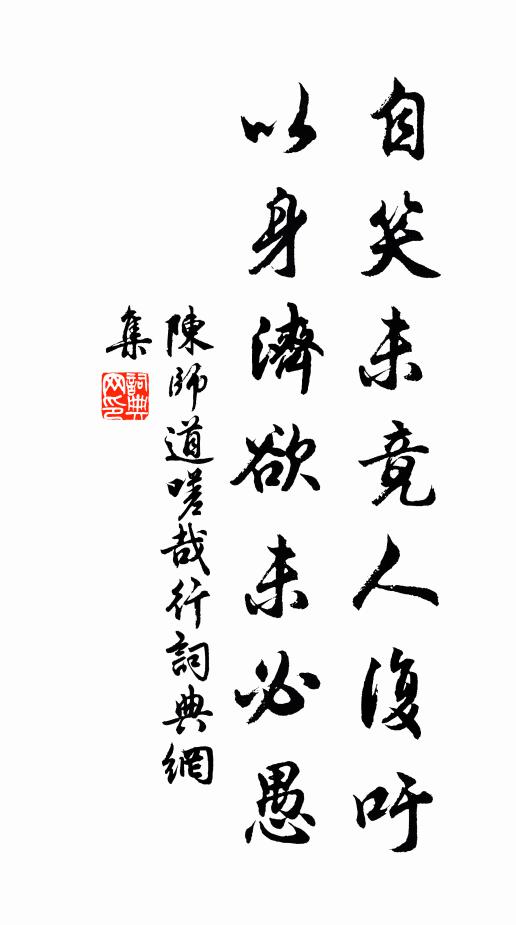 自笑未竟人復吁
以身濟欲未必愚
陳師道嗟哉行詞典網
集
詞典
网印